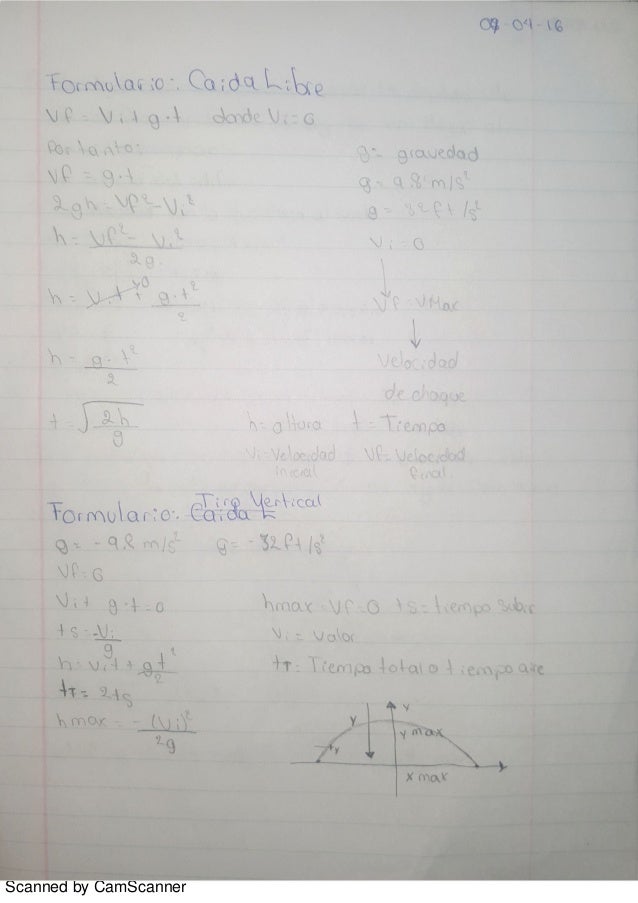 04-16
Formulario: Caída Libre
Vf = Vi + g·t donde Vi=0
Por tanto:
Vf = g·t
2gh = Vf² - Vi²
h = Vf² - Vi² / 2g.
h = Vi·t⁰ + g·t² / 2
h = g·t² / 2
t = √2h/g
g = gravedad
g = 9.8 m/s²
g = 32 ft/s²
Vi = 0
Vf = VMax
Velocidad
de choque
h = altura t = Tiempo
Vi = Velocidad inicial Vf = Velocidad final.
Formulario: Caída L Tiro Vertical
g = -9.8 m/s² g = -32 ft/s²
Vf = 0
Vi + g·t = 0
ts = -Vi / g
h = Vi t + gt² / 2
tT = 2ts
hmax = -(Vi)² / 2g
hmax = Vf = 0 ts = tiempo subir
Vi = valor
tT = Tiempo total o tiempo aire
Y
Y
Y max
Y
X max
Scanned by CamScanner